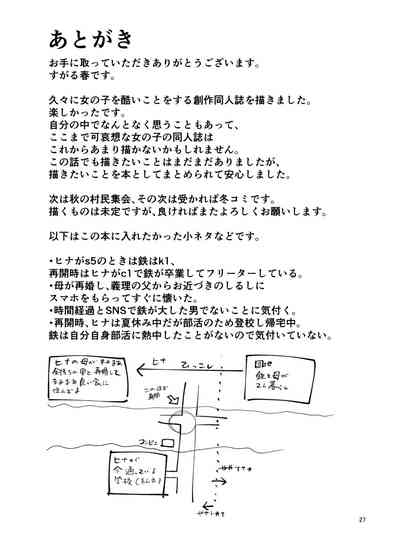 あとがき
お手に取っていただきありがとうございます。
すがる春です。
久々に女の子を酷いことをする創作同人誌を描きました。
楽しかったです。
自分の中でなんとなく思うこともあって、
ここまで可哀想な女の子の同人誌は
これからあまり描かないかもしれません。
この話でも描きたいことはまだまだありましたが、
描きたいことを本としてまとめられて安心しました。
次は秋の村民集会、その次は受かれば冬コミです。
描くものは未定ですが、良ければまたよろしくお願いします。
以下はこの本に入れたかった小ネタなどです。
・ヒナがs5のときは鉄はk1、
再開時はヒナがc1で鉄が卒業してフリーターしている。
・母が再婚し、義理の父からお近づきのしるしに
スマホをもらってすぐに懐いた。
・時間経過とSNSで鉄が大した男でないことに気付く。
・再開時、ヒナは夏休み中だが部活のため登校し帰宅中。
鉄は自分自身部活に熱中したことがないので気付いていない。
ヒナ
ひっこし
ヒナの母が
コンビニ
ヒナが
今通っている
27